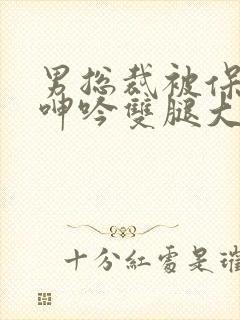 男总裁被保
呻吟雙腿大
十分紅處是璀